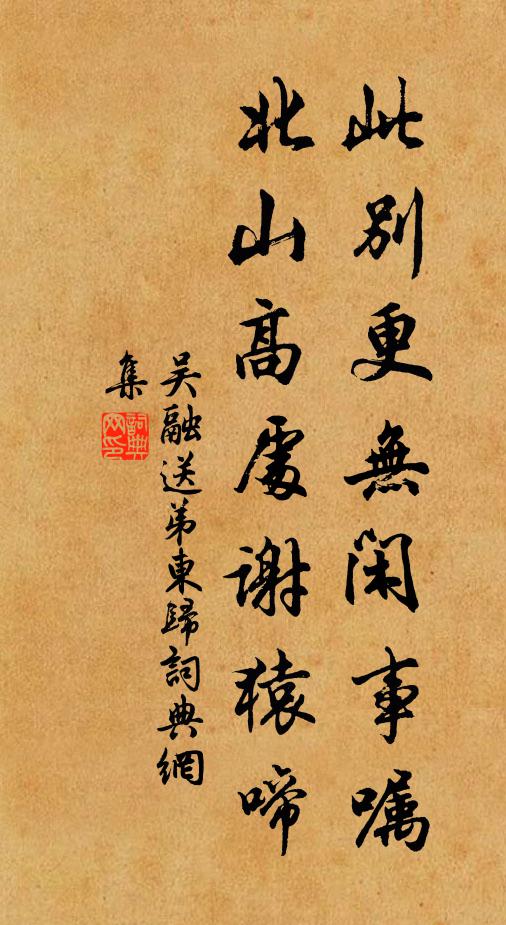 此別更無閑事囑
北山高處謝猿啼
吴融送弟東歸詞典網
集
詞典网印